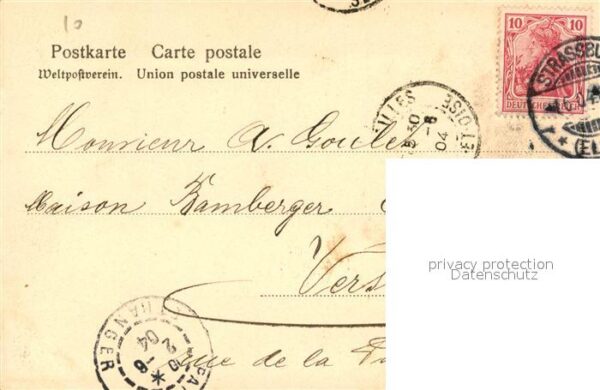 10
Postkarte Carte postale
Weltpostverein. Union postale universelle
10 10
DEUTSCHES
STRASSBU
(EL
ET OISE
04
Monsieur A. Goule
Maison Bamberger
Vers
rue de la
ETRANGER
04
privacy protection
Datenschutz